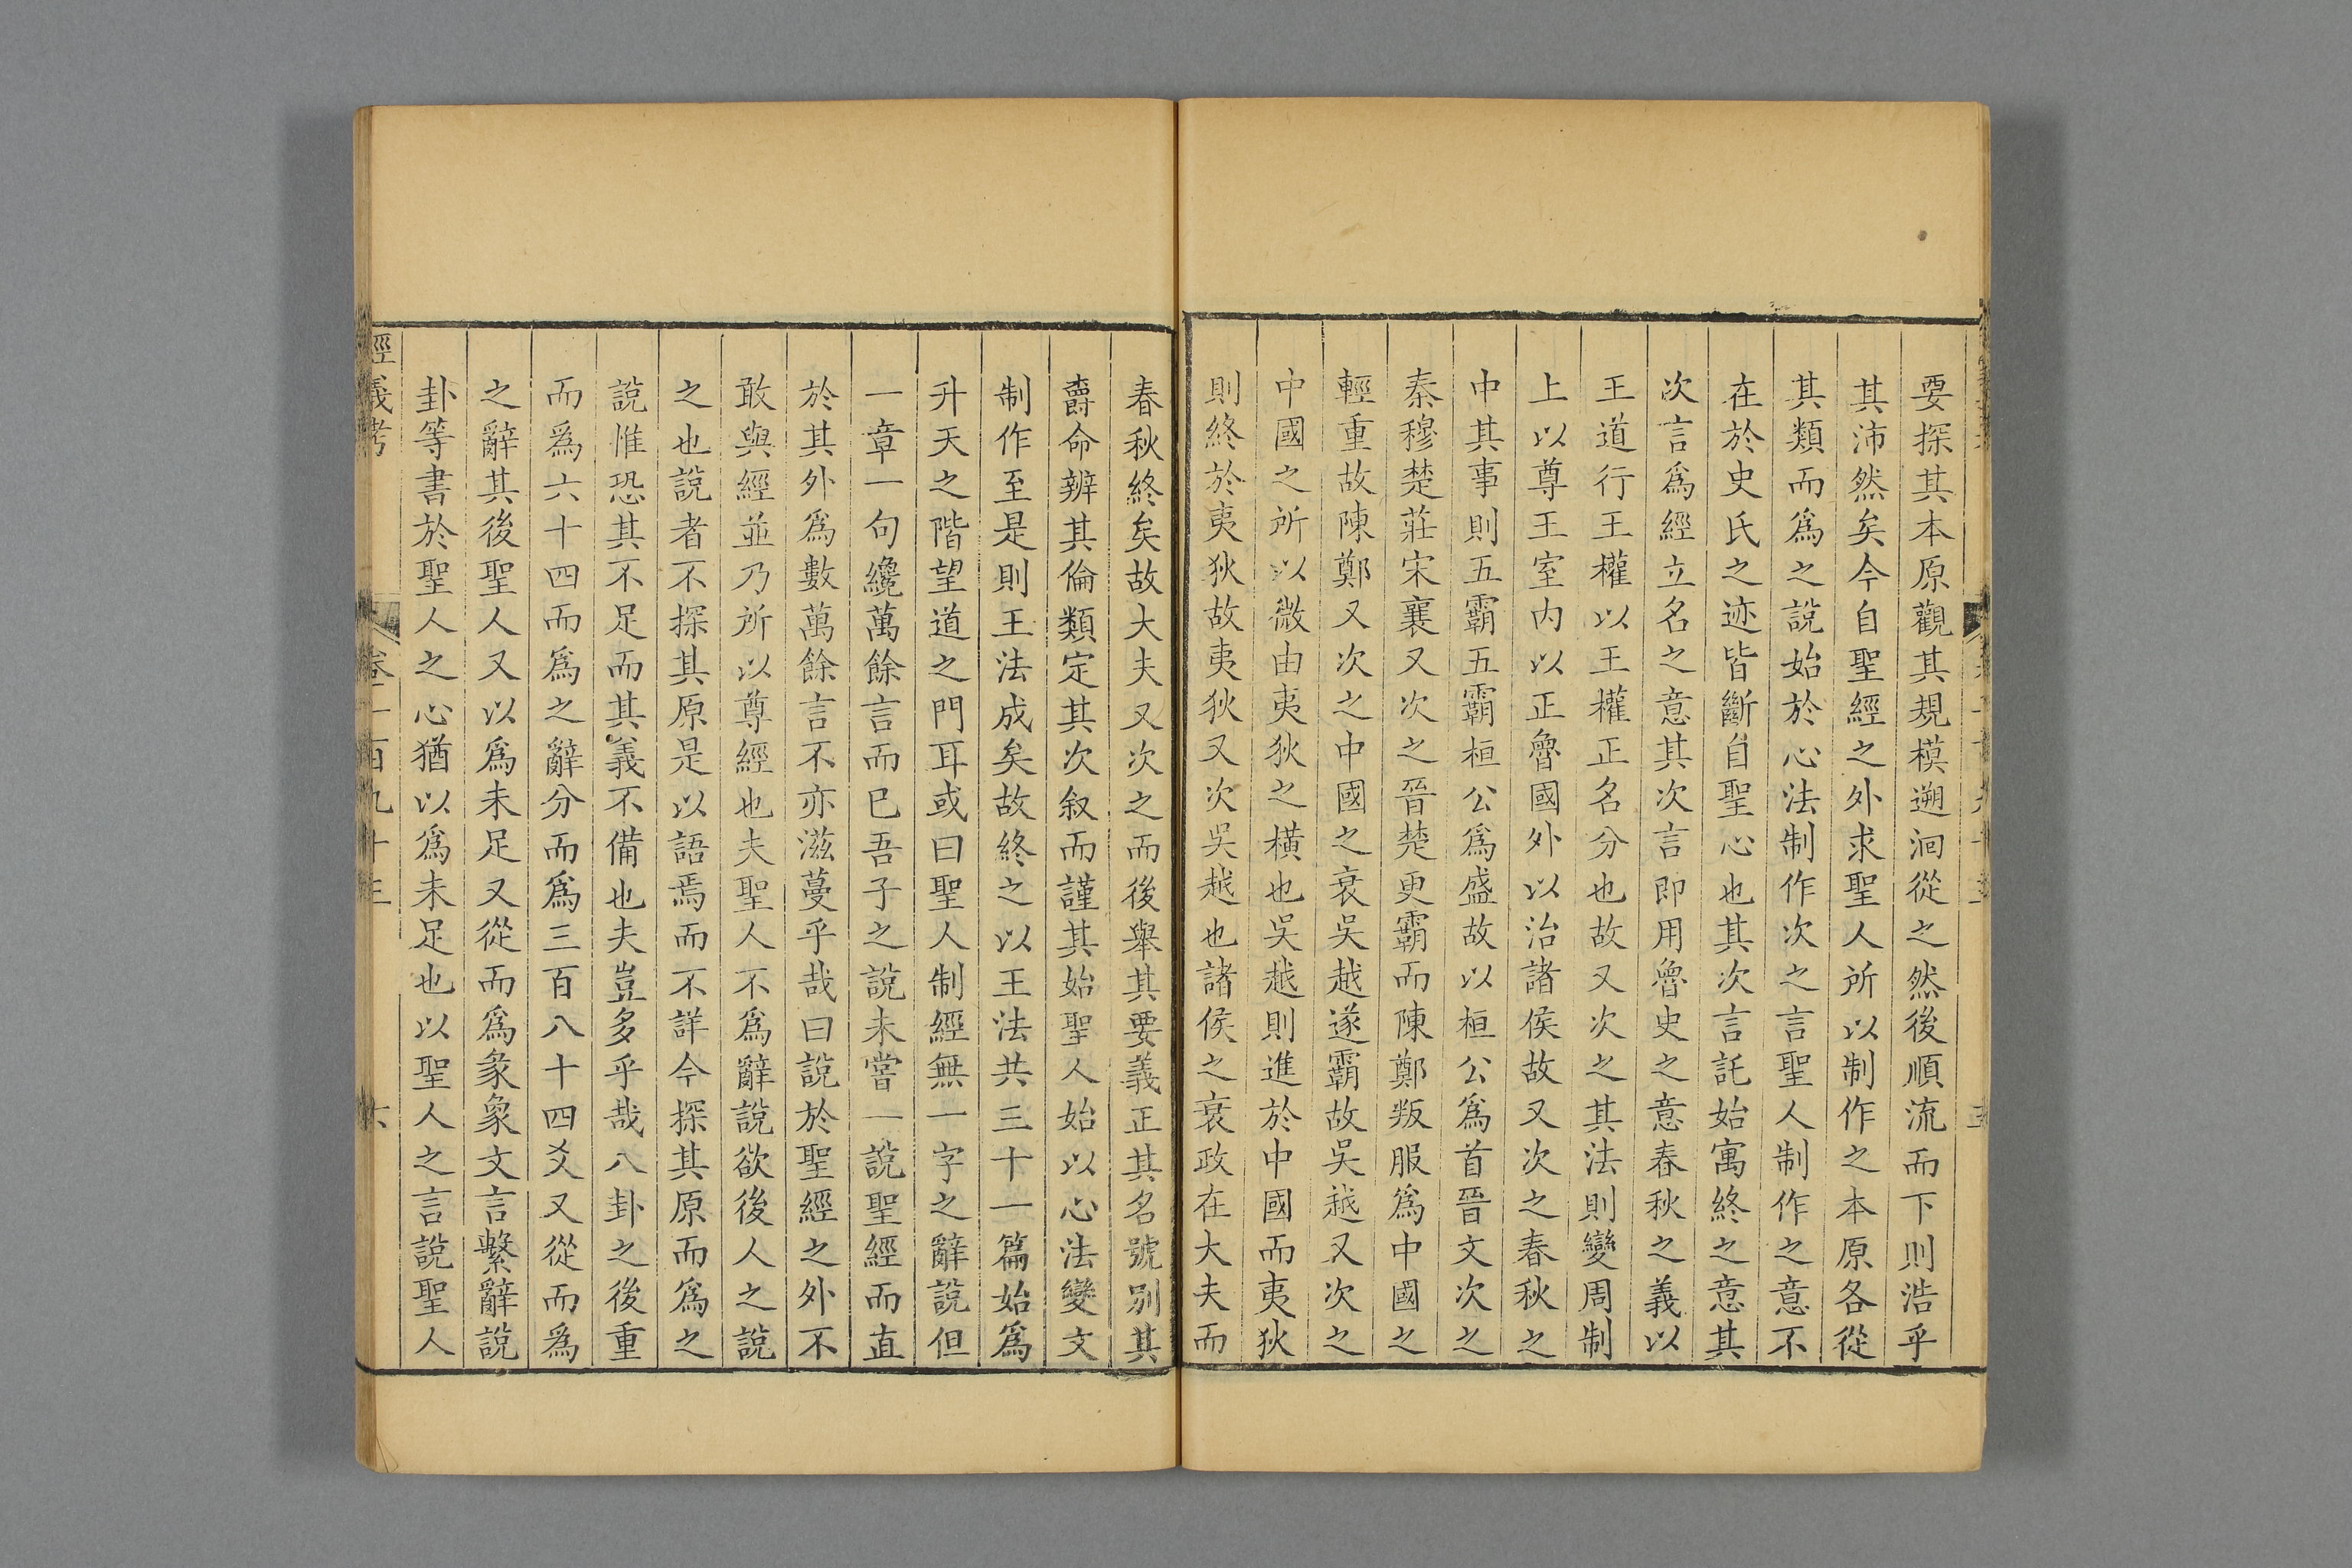 要探其本原觀其規模遡洄從之然後順流而下則浩乎
其沛然矣今自聖經之外求聖人所以制作之本原各從
其類而爲之說始於心法制作次之言聖人制作之意不
在於史氏之迹皆斷自聖心也其次言託始寓終之意其
次言爲經立名之意其次言即用魯史之意春秋之義以
王道行王權以王權正名分也故又次之其法則變周制
上以尊王室内以正魯國外以治諸侯故又次之春秋之
中其事則五霸五霸桓公爲盛故以桓公爲首晉文次之
秦穆楚莊宋襄又次之晉楚更霸而陳鄭叛服爲中國之
輕重故陳鄭又次之中國之衰吳越遂霸故吳越又次之
中國之所以微由夷狄之橫也吳越則進於中國而夷狄
則終於夷狄故夷狄又次吳越也諸侯之衰政在大夫而
春秋終矣故大夫又次之而後舉其要義正其名號别其
爵命辨其倫類定其次叙而謹其始聖人始以心法變文
制作至是則王法成矣故終之以王法共三十一篇始爲
升天之階望道之門耳或曰聖人制經無一字之辭說但
一章一句纔萬餘言而已吾子之說未嘗一說聖經而直
於其外爲數萬餘言不亦滋蔓乎哉曰說於聖經之外不
敢與經並乃所以尊經也夫聖人不爲辭說欲後人之說
之也說者不探其原是以語焉而不詳今探其原而爲之
說惟恐其不足而其義不備也夫豈多乎哉八卦之後重
而爲六十四而爲之辭分而爲三百八十四爻又從而爲
之辭其後聖人又以爲未足又從而爲彖象文言繫辭說
卦等書於聖人之心猶以爲未足也以聖人之言說聖人
經義考 卷二百九十三 六